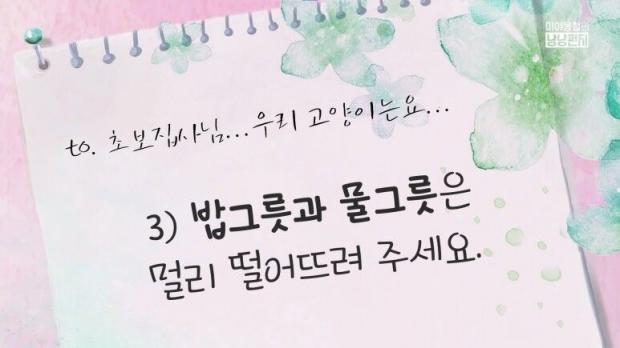 미야옹철의
냥냥편지
to. 초보집사님...우리 고양이는요...
3) 밥그릇과 물그릇은
멀리 떨어뜨려 주세요.